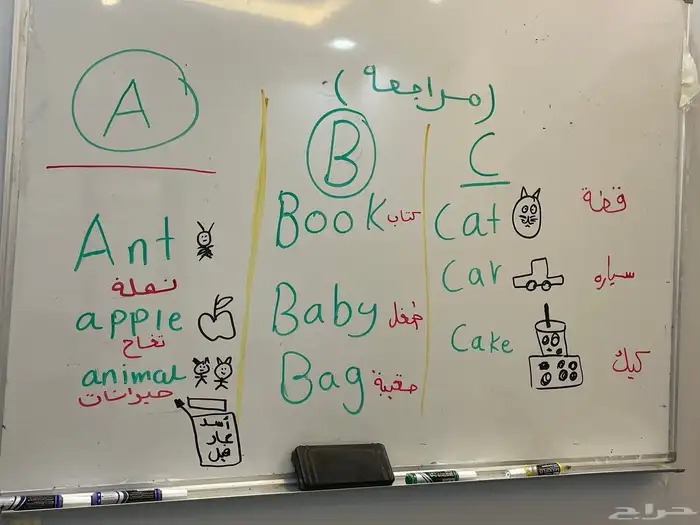 (مراجعة)
A
Ant
نملة
apple
تفاح
animal
حيوانات
أسد
فيل
B
Book كتاب
Baby طفل
Bag حقيبة
C
Cat قطة
Car سياره
Cake كيك
حراج